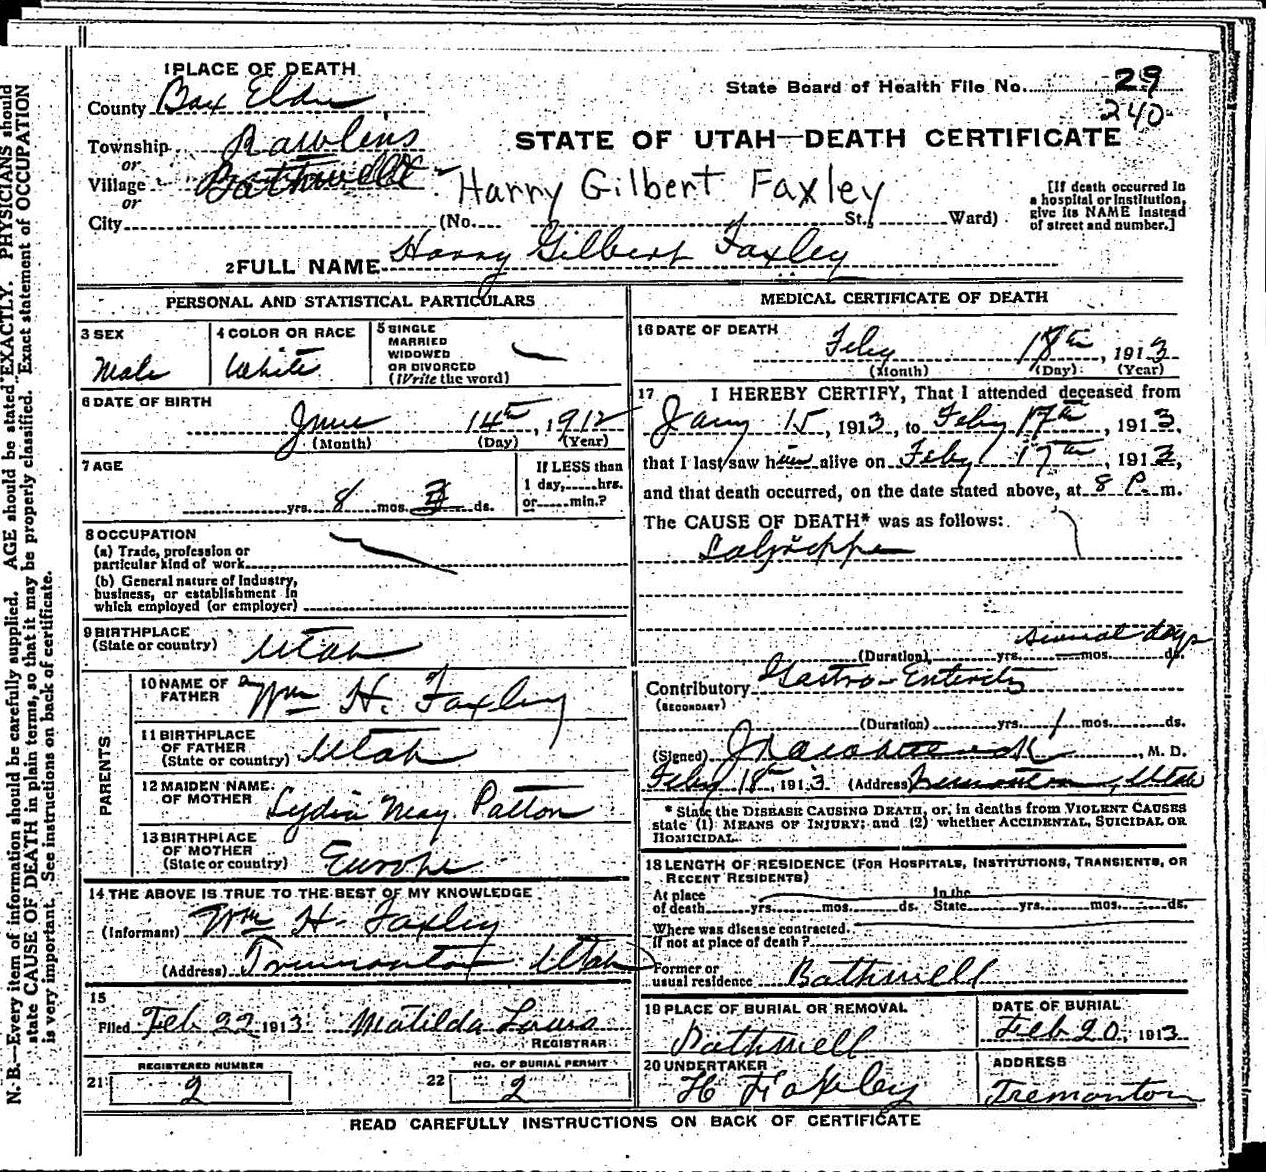 1 PLACE OF DEATH
County Box Elder
State Board of Health File No. 29
240
Township Rawlins
or
Village Bothwell
or
City
STATE OF UTAH—DEATH CERTIFICATE
Harry Gilbert Faxley
(No. St., Ward)
[If death occurred in a hospital or institution, give its NAME instead of street and number.]
2 FULL NAME Harry Gilbert Faxley
PERSONAL AND STATISTICAL PARTICULARS
3 SEX
Male
4 COLOR OR RACE
White
5 SINGLE
MARRIED
WIDOWED
OR DIVORCED
(Write the word)
6 DATE OF BIRTH
June 14th, 1912
(Month) (Day) (Year)
7 AGE
yrs. 8 mos. 3 ds.
If LESS than
1 day, hrs.
or min.?
8 OCCUPATION
(a) Trade, profession or
particular kind of work
(b) General nature of Industry,
business, or establishment in
which employed (or employer)
9 BIRTHPLACE
(State or country) Utah
PARENTS
10 NAME OF
FATHER Wm H. Faxley
11 BIRTHPLACE
OF FATHER
(State or country) Utah
12 MAIDEN NAME
OF MOTHER Lydia May Patton
13 BIRTHPLACE
OF MOTHER
(State or country) Europe
14 THE ABOVE IS TRUE TO THE BEST OF MY KNOWLEDGE
(Informant) Wm H. Faxley
(Address) Tremonton Utah
15
Filed Feb 22 1913 Matilda
REGISTRAR
REGISTERED NUMBER
21 2
NO. OF BURIAL PERMIT
22 2
MEDICAL CERTIFICATE OF DEATH
16 DATE OF DEATH
Feby 18th, 1913
(Month) (Day) (Year)
17 I HEREBY CERTIFY, That I attended deceased from
Jany 15, 1913, to Feby 17th, 1913,
that I last saw him alive on Feby 17th, 1913,
and that death occurred, on the date stated above, at 8 P. m.
The CAUSE OF DEATH* was as follows:
LaGrippe
several days
(Duration) yrs. mos. ds.
Contributory Gastro-Enteritis
(SECONDARY)
(Duration) yrs. 1 mos. ds.
(Signed) , M. D.
Feby 18, 1913 (Address) Tremonton, Utah
* State the DISEASE CAUSING DEATH, or, in deaths from VIOLENT CAUSES
state (1) MEANS OF INJURY; and (2) whether ACCIDENTAL, SUICIDAL OR
HOMICIDAL.
18 LENGTH OF RESIDENCE (FOR HOSPITALS, INSTITUTIONS, TRANSIENTS, OR
RECENT RESIDENTS)
At place
of death yrs. mos. ds.
In the
State yrs. mos. ds.
Where was disease contracted.
if not at place of death?
Former or
usual residence Bothwell
19 PLACE OF BURIAL OR REMOVAL
Bothwell
DATE OF BURIAL
Feb 20, 1913
20 UNDERTAKER
H Foxley
ADDRESS
Tremonton
READ CAREFULLY INSTRUCTIONS ON BACK OF CERTIFICATE
N. B.—Every item of information should be carefully supplied. AGE should be stated EXACTLY. PHYSICIANS should
state CAUSE OF DEATH in plain terms, so that it may be properly classified. Exact statement of OCCUPATION
is very important. See instructions on back of certificate.